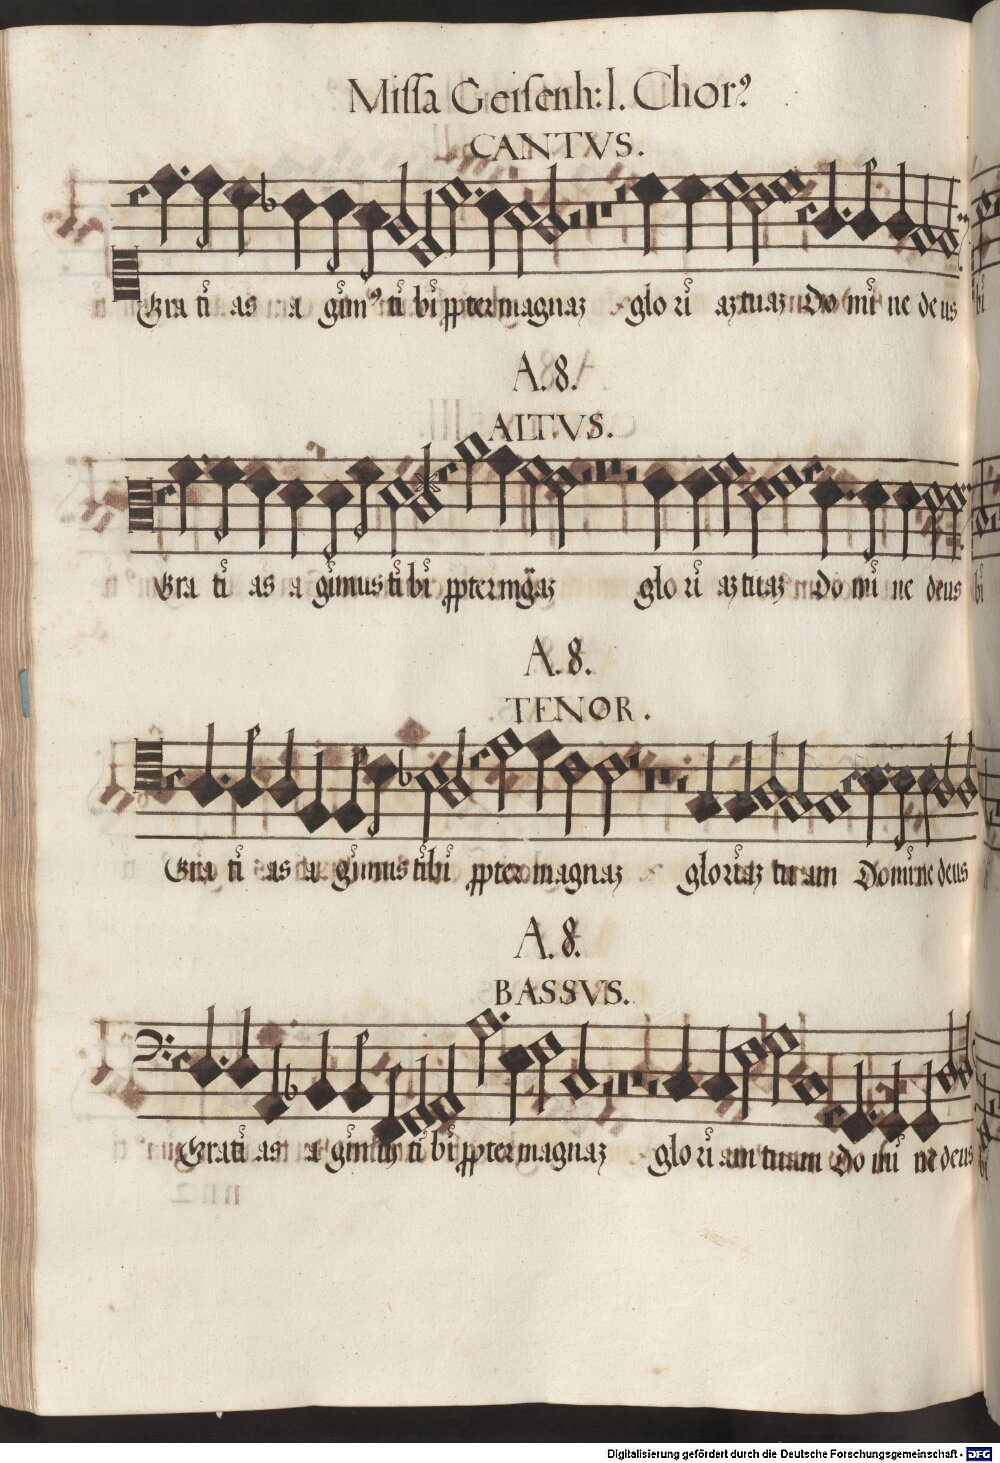 Missa Geisenh: I. Chor9
CANTVS.
Gra ti as a gim9 ti bi ppter magnaz glo ri az tuaz Do mi ne deus
A. 8.
ALTVS.
Gra ti as a gimus ti bi ppter mgaz glo ri az tuaz Do mi ne deus
A. 8.
TENOR.
Gra ti as a gimus tibi ppter magnaz gloriaz tuam Domine deus
A. 8.
BASSVS.
Grati as a gim9 ti bi ppter magnaz glo ri am tuam Do mi ne deus
Digitalisierung gefördert durch die Deutsche Forschungsgemeinschaft - DFG